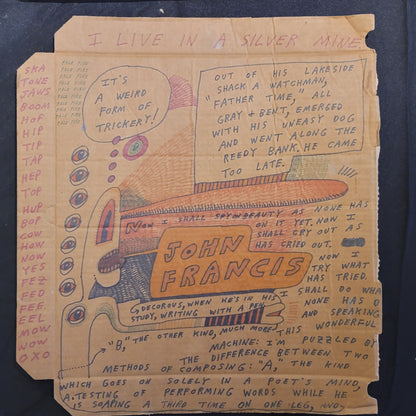 I LIVE IN A SILVER MINE
SKA
TONE
JAWS
BOOM
HOF
HIP
TIP
TAP
HEP
TOP
HUP
BOP
COW
HOW
NOW
YES
FEZ
EED
FEE
EEL
MOW
WOW
OXO
PALE FIRE
PALE FIRE
PALE FIRE
PALE FIRE
PALE FIRE
PALE FIRE
PALE FIRE
IT'S
A WEIRD
FORM OF
TRICKERY!
OUT OF HIS LAKESIDE
SHACK A WATCHMAN,
"FATHER TIME," ALL
GRAY & BENT, EMERGED
WITH HIS UNEASY DOG
AND WENT ALONG THE
REEDY BANK. HE CAME
TOO LATE.
NOW I SHALL SPY ON BEAUTY AS NONE HAS
ON IT YET. NOW I
SHALL CRY OUT AS
HAS CRIED OUT.
NOW I
TRY WHAT
HAS TRIED.
I SHALL DO WHA
NONE HAS D
AND SPEAKING
THIS WONDERFUL
JOHN
FRANCIS
DECOROUS, WHEN HE'S IN HIS
STUDY, WRITING WITH A PEN.
"B," THE OTHER KIND, MUCH MORE
MACHINE: I'M PUZZLED BY
THE DIFFERENCE BETWEEN TWO
METHODS OF COMPOSING: "A," THE KIND
WHICH GOES ON SOLELY IN A POET'S MIND,
A TESTING OF PERFORMING WORDS WHILE HE
IS SOAPING A THIRD TIME ON ONE LEG, AND